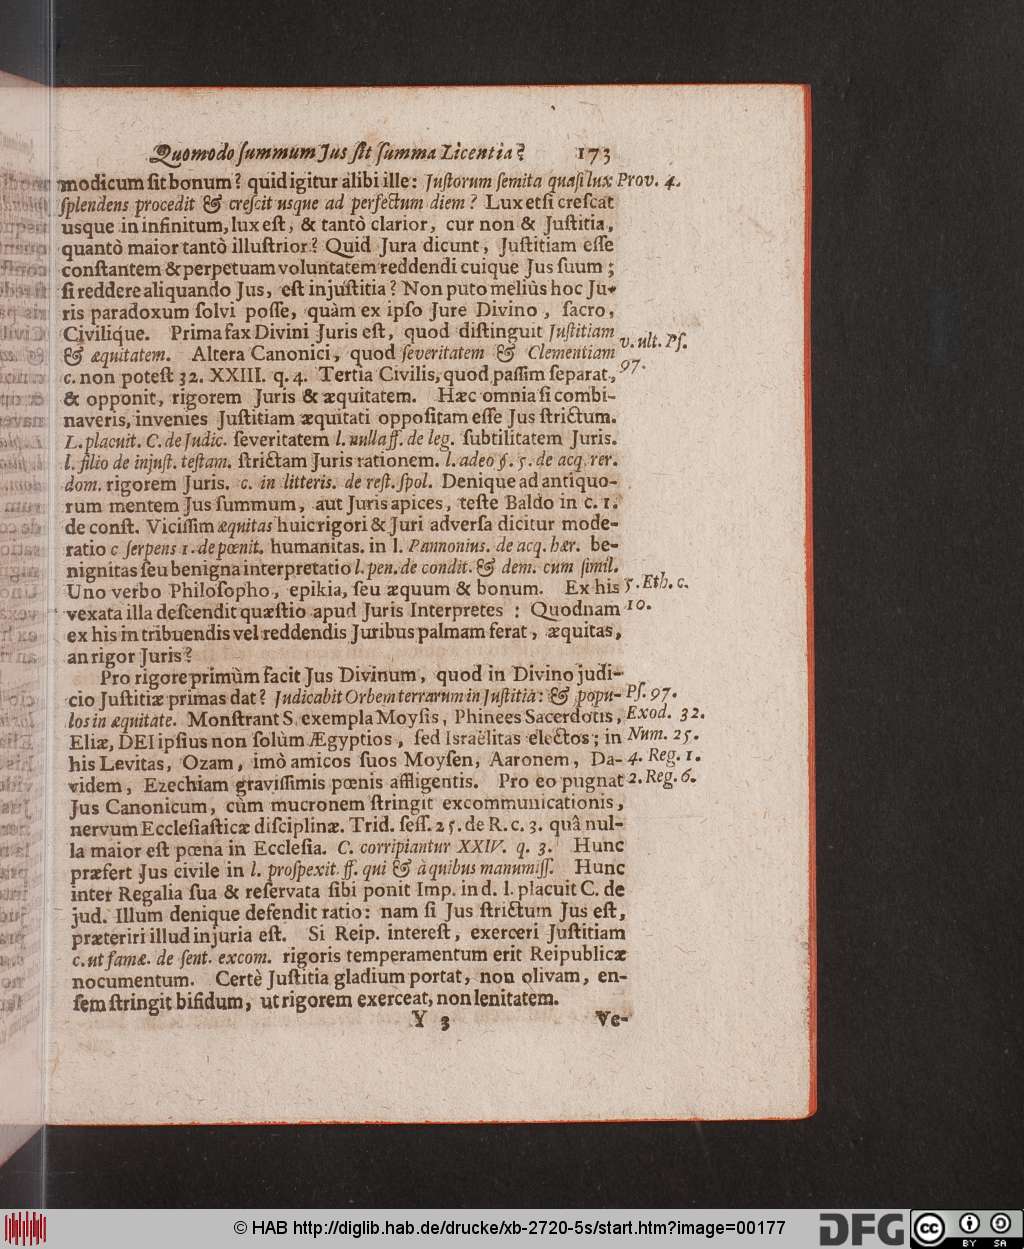 Quomodo ſummum Jus ſit ſumma Licentia? 173
modicum ſit bonum? quid igitur alibi ille: Juſtorum ſemita quaſi lux Prov. 4.
ſplendens procedit & creſcit usque ad perfectum diem? Lux etſi creſcat
usque in infinitum, lux eſt, & tantò clarior, cur non & Juſtitia,
quantò maior tantò illuſtrior? Quid Jura dicunt, Juſtitiam eſſe
conſtantem & perpetuam voluntatem reddendi cuique Jus ſuum;
ſi reddere aliquando Jus, eſt injuſtitia? Non puto meliùs hoc Ju-
ris paradoxum ſolvi poſſe, quàm ex ipſo Jure Divino, ſacro,
Civilique. Prima fax Divini Juris eſt, quod diſtinguit Juſtitiam
v. ult. Pſ.
& æquitatem. Altera Canonici, quod ſeveritatem & Clementiam
97.
c. non poteſt 32. XXIII. q. 4. Tertia Civilis, quod paſſim ſeparat,
& opponit, rigorem Juris & æquitatem. Hæc omnia ſi combi-
naveris, invenies Juſtitiam æquitati oppoſitam eſſe Jus ſtrictum.
L. placuit. C. de Judic. ſeveritatem l. nulla ff. de leg. ſubtilitatem Juris.
l. filio de injuſt. teſtam. ſtrictam Juris rationem. l. adeo §. 5. de acq. rer.
dom. rigorem Juris. c. in litteris. de reſt. ſpol. Denique ad antiquo-
rum mentem Jus ſummum, aut Juris apices, teſte Baldo in c. 1.
de conſt. Viciſſim æquitas huic rigori & Juri adverſa dicitur mode-
ratio c ſerpens 1. de pœnit. humanitas. in l. Pannonius. de acq. hær. be-
nignitas ſeu benigna interpretatio l. pen. de condit. & dem. cum ſimil.
Uno verbo Philoſopho, epikia, ſeu æquum & bonum. Ex his 5. Eth. c.
vexata illa deſcendit quæſtio apud Juris Interpretes: Quodnam 10.
ex his in tribuendis vel reddendis Juribus palmam ferat, æquitas,
an rigor Juris?
Pro rigore primùm facit Jus Divinum, quod in Divino judi-
cio Juſtitiæ primas dat? Judicabit Orbem terrarum in Juſtitiâ: & popu- Pſ. 97.
los in æquitate. Monſtrant S. exempla Moyſis, Phinees Sacerdotis, Exod. 32.
Eliæ, DEI ipſius non ſolùm Ægyptios, ſed Israëlitas electos; in Num. 25.
his Levitas, Ozam, imò amicos ſuos Moyſen, Aaronem, Da- 4. Reg. 1.
videm, Ezechiam graviſſimis pœnis affligentis. Pro eo pugnat 2. Reg. 6.
Jus Canonicum, cùm mucronem ſtringit excommunicationis,
nervum Eccleſiaſticæ diſciplinæ. Trid. ſeſſ. 25. de R. c. 3. quâ nul-
la maior eſt pœna in Eccleſia. C. corripiantur XXIV. q. 3. Hunc
præfert Jus civile in l. proſpexit. ff. qui & à quibus manumiſſ. Hunc
inter Regalia ſua & reſervata ſibi ponit Imp. in d. l. placuit C. de
jud. Illum denique defendit ratio: nam ſi Jus ſtrictum Jus eſt,
præteriri illud injuria eſt. Si Reip. intereſt, exerceri Juſtitiam
c. ut famæ. de ſent. excom. rigoris temperamentum erit Reipublicæ
nocumentum. Certè Juſtitia gladium portat, non olivam, en-
ſem ſtringit bifidum, ut rigorem exerceat, non lenitatem.
Y 3 Ve-
© HAB http://diglib.hab.de/drucke/xb-2720-5s/start.htm?image=00177
DFG
cc BY SA